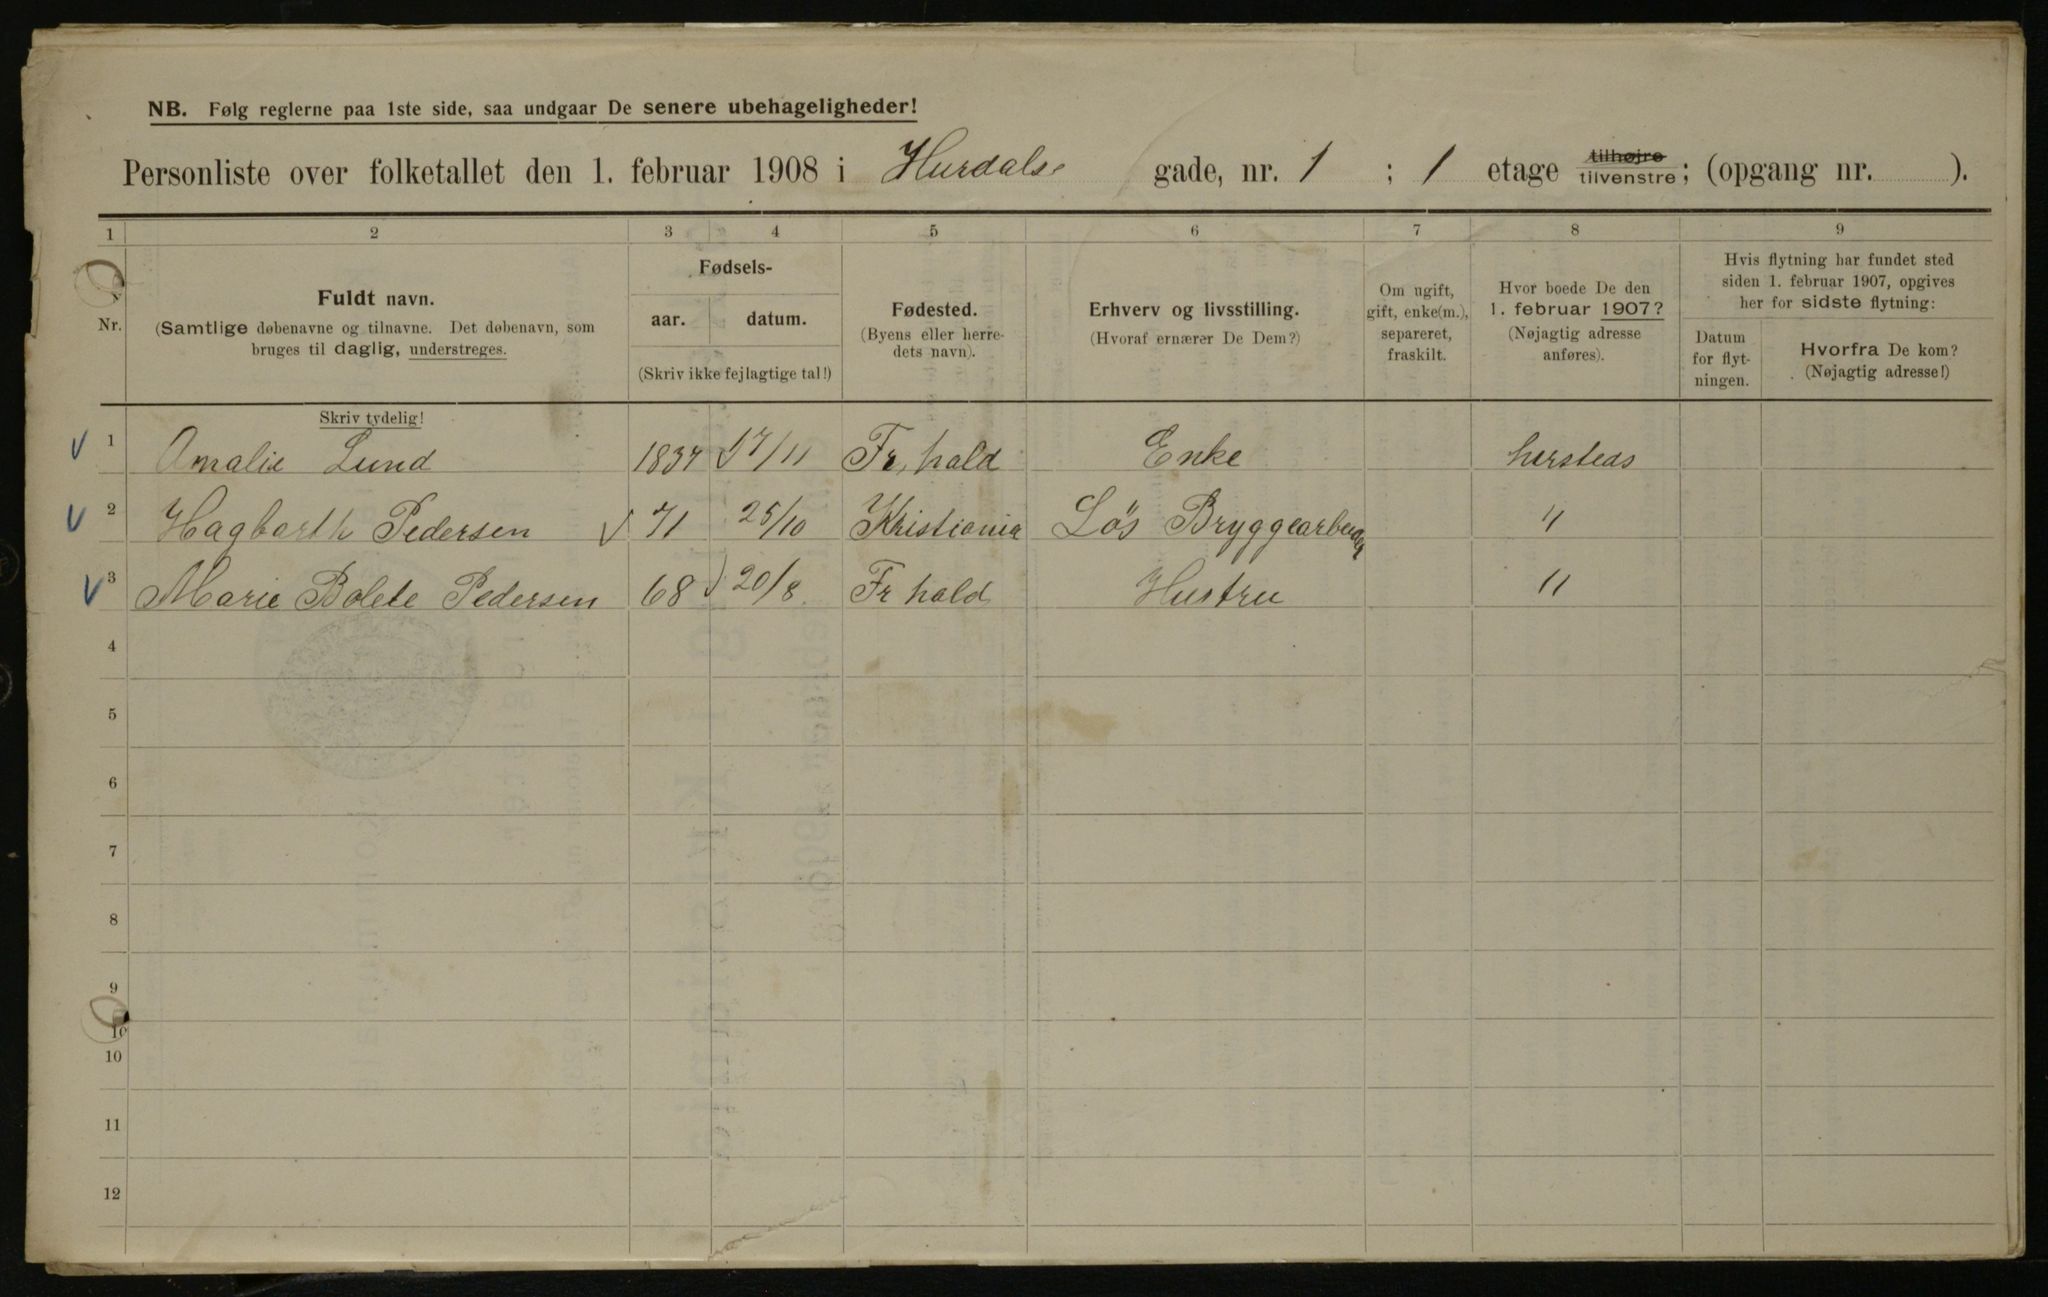 NB. Følg reglerne paa 1ste side, saa undgaar De senere ubehageligheder!
Personliste over folketallet den 1. februar 1908 i Hurdalse gade, nr. 1 ; 1 etage tilhøjre tilvenstre ; (opgang nr. ).
1 2 3 4 5 6 7 8 9
Nr.
Fuldt navn.
(Samtlige døbenavne og tilnavne. Det døbenavn, som
bruges til daglig, understreges.
Skriv tydelig!
Fødsels-
aar. datum.
(Skriv ikke fejlagtige tal!)
Fødested.
(Byens eller herre-
dets navn).
Erhverv og livsstilling.
(Hvoraf ernærer De Dem?)
Om ugift,
gift, enke(m.),
separeret,
fraskilt.
Hvor boede De den
1. februar 1907?
(Nøjagtig adresse
anføres).
Hvis flytning har fundet sted
siden 1. februar 1907, opgives
her for sidste flytning:
Datum
for flyt-
ningen.
Hvorfra De kom?
(Nøjagtig adresse!)
1 Amalie Lund 17/11 Fr. hald Enke hersteds
2 Hagbarth Pedersen 71 25/10 Kristiania Løs Bryggearbeider "
3 Marie Bolete Pedersen 68 20/8 Fr hald Hustru "
4
5
6
7
8
9
10
10
11
12